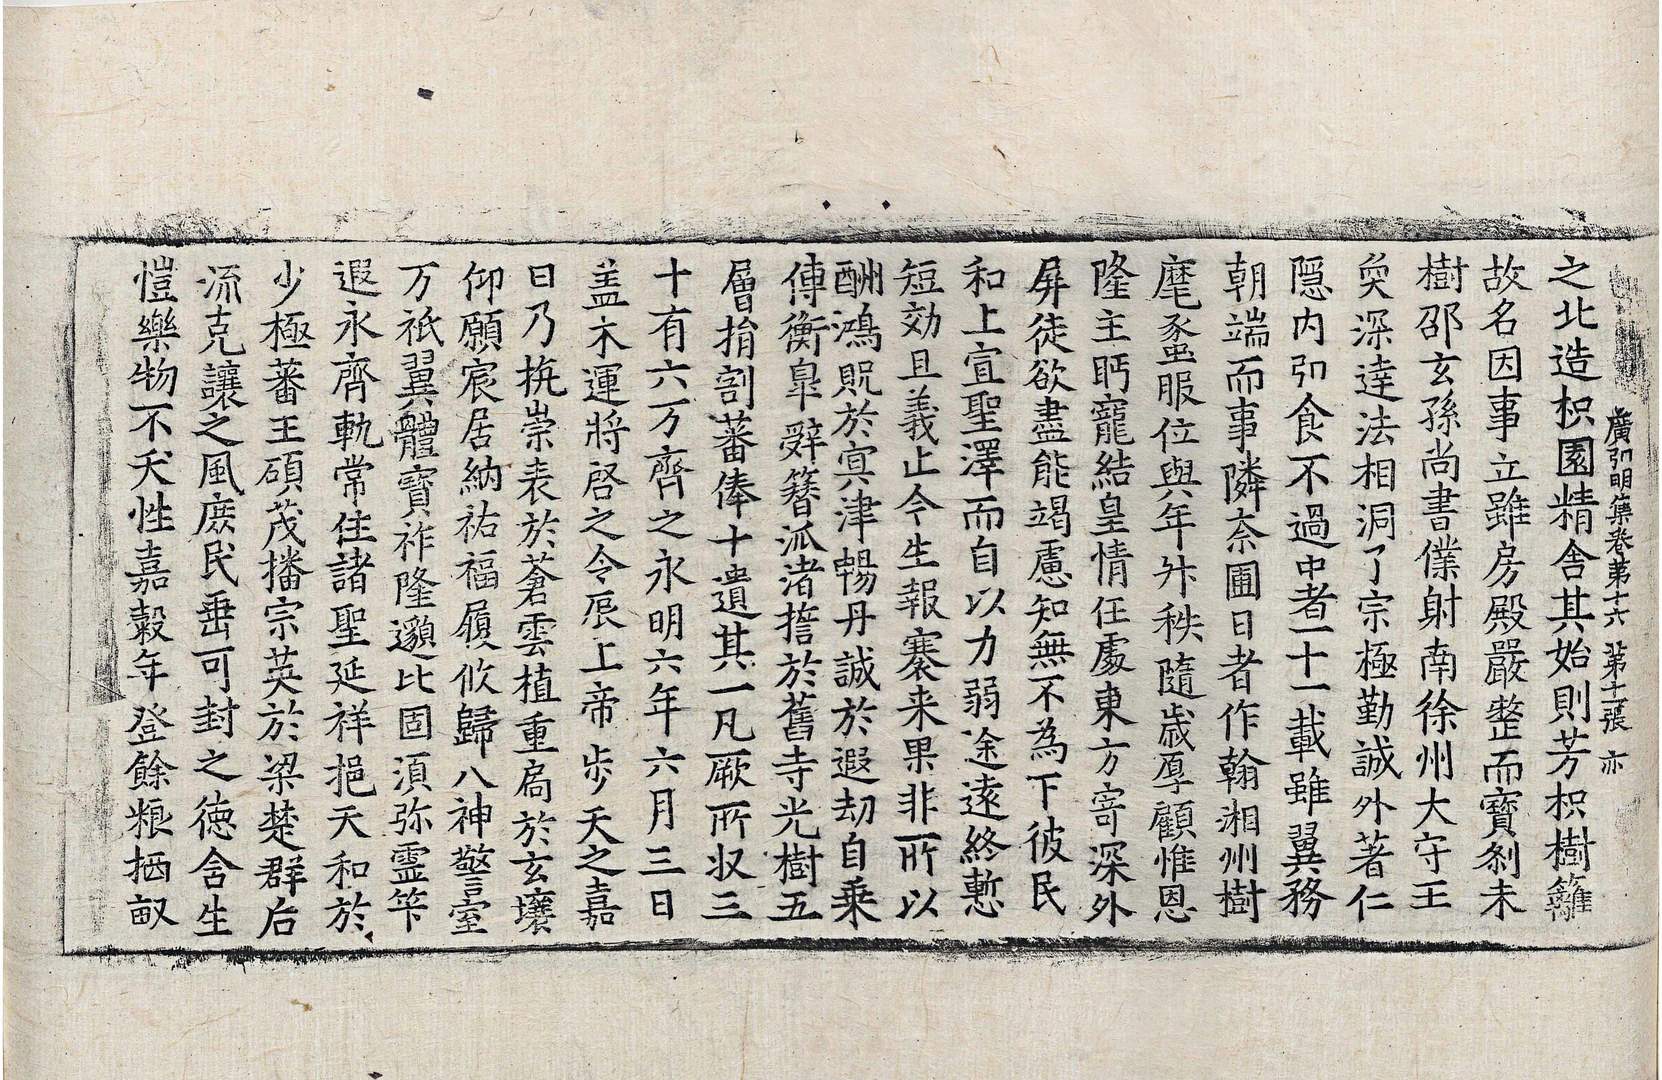 廣弘明集卷苐十六 苐十一張 亦
之北造枳園精舍其始則芳枳樹籬
故名因事立雖房殿嚴整而寶刹未
樹邵玄孫尚書僕射南徐州大守王
奐深達法相洞了宗極勤誠外著仁
隱内弘食不過中者一十一載雖翼務
朝端而事隣柰圃日者作翰湘州樹
麾來蛮服位與年外秩隨歲厚顧惟恩
隆主眄寵結皇情任處東方寄深外
屏徒欲盡能竭慮知無不為下彼民
和上宣聖澤而自以力弱途遠終慙
短効且義止今生報褰来果非所以
酬鴻貺於宴津暢丹誠於遐劫自乗
傳衡皐辤簮派渚擔於舊寺光樹五
層捐割蕃俸十遺其一凡厥所收三
十有六万齊之永明六年六月三日
盖木運將啓之令辰上帝步天之嘉
日乃抗崇表於蒼雲植重扃於玄壤
仰願宸居納祐福履攸歸八神警室
万祇翼體寶祚隆邈比固湏弥霊筭
遐永齊軌常住諸聖延祥挹天和於
少極蕃王碩茂播宗英於梁楚群后
流克讓之風庶民垂可封之徳含生
愷樂物不夭性嘉穀年登餘粮栖畝